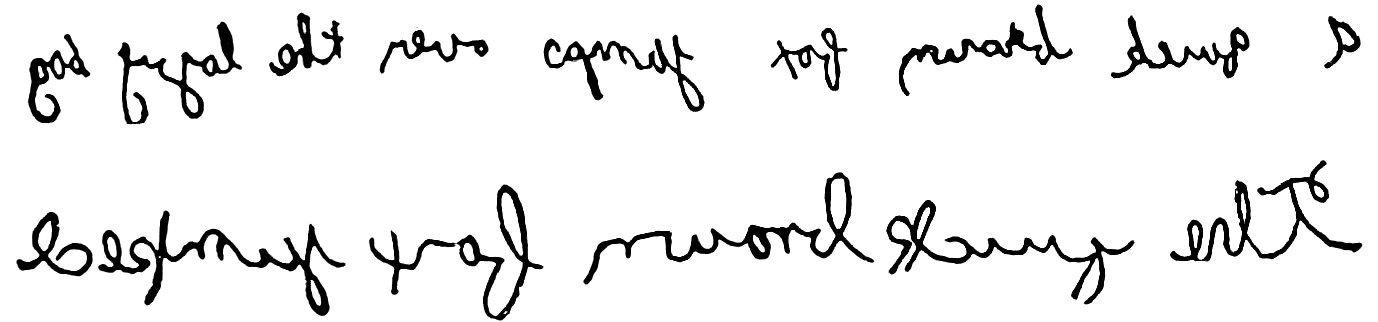 a quick brown fox jumps over the lazy dog
The quick brown fox